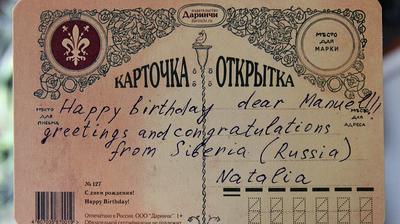 издательство
Даринчи
МЕСТО ДЛЯ МАРКИ
КАРТОЧКА ОТКРЫТКА
МЕСТО ДЛЯ ПИСЬМА
МЕСТО ДЛЯ АДРЕСА
Happy Birthday dear Manuel!!!
greetings and congratulations
from Siberia (Russia)
Natalia
№ 127
С днем рождения!
Happy Birthday!
Отпечатано в России. ООО "Даринчи" 1+